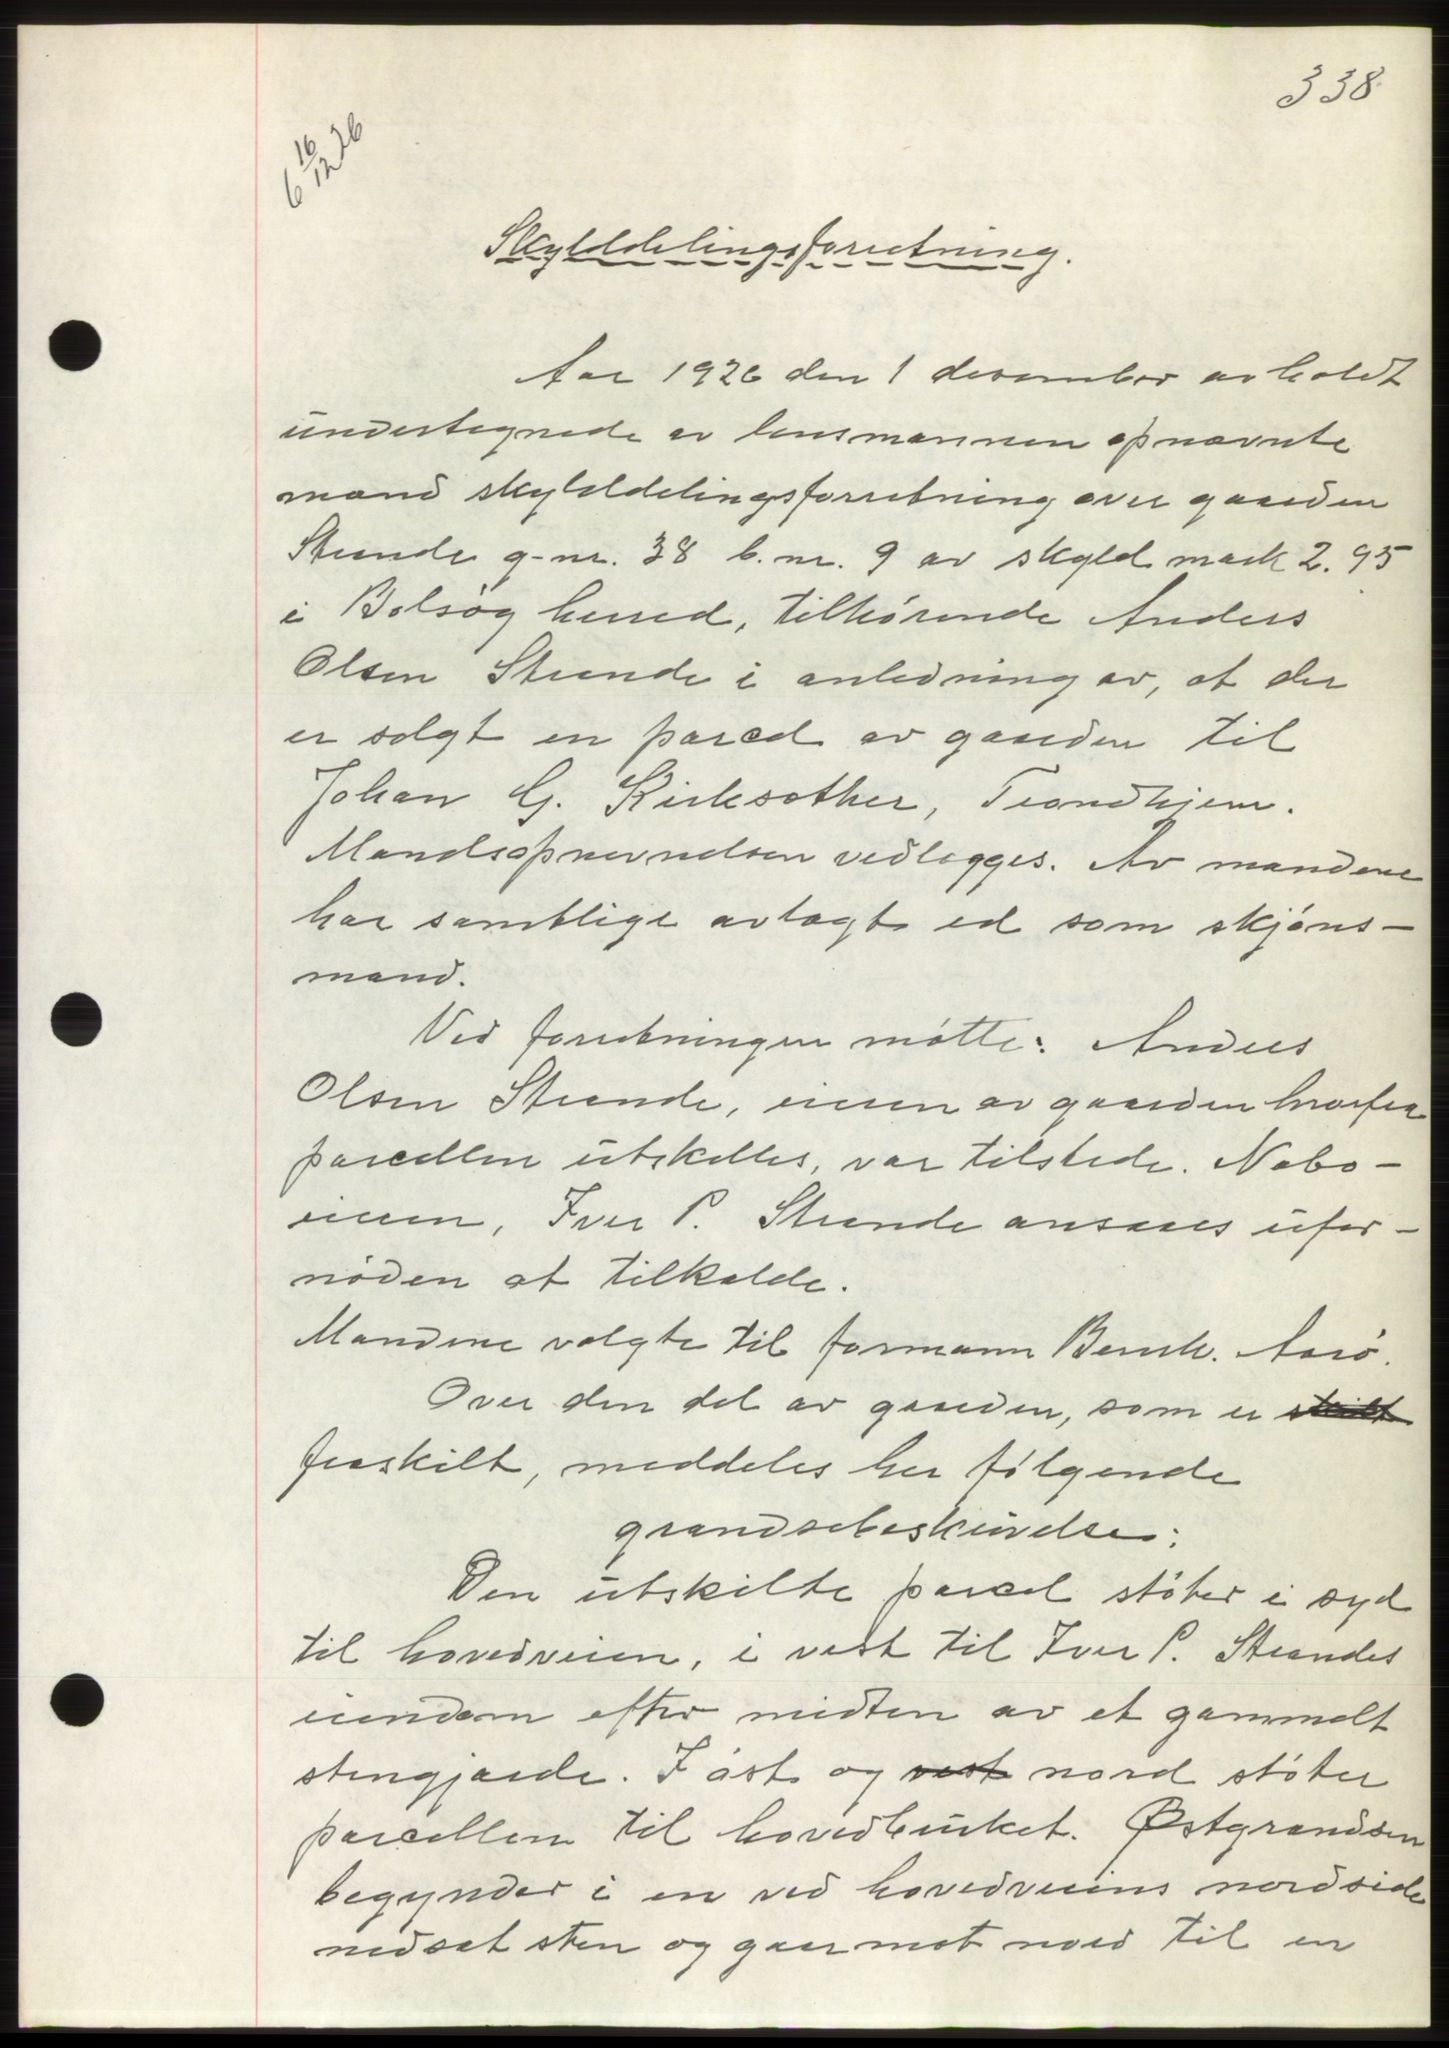 338
6 16/12 26
Skylddelingsforretning.
Aar 1926 den 1 desember avholdt
undertegnede av lensmannen opnævnte
mænd skylddelingsforretning over gaarden
Strande g-nr. 38 b.nr. 9 av skyld mark 2.95
i Bolsøy herred, tilhørende Anders
Olsen Strande i anledning av, at der
er solgt en parcel av gaarden til
Johan G. Kirksæther, Trondhjem.
Mandsopnevnelsen vedlegges. Av mændene
har samtlige avlagt ed som skjøns-
mænd.
Ved forretningen møtte: Anders
Olsen Strande, eieren av gaarden hvorfra
parcellen utskilles, var tilstede. Nabo-
eieren, Iver P. Strande ansaaes ufor-
nøden at tilkalde.
Mændene valgte til formann Bernh. Aarø.
Over den del av gaarden, som er skilt
fraskilt, meddeles her følgende
grændsebeskrivelse:
Den utskilte parcel støter i syd
til hovedveien, i vest til Iver P. Strandes
eiendom efter midten av et gammelt
stengjærde. I øst og vest nord støter
parcellen til hovedbruket. Østgrændsen
begynder i en ved hovedveiens nordside
nedsat sten og gaar mot nord til en